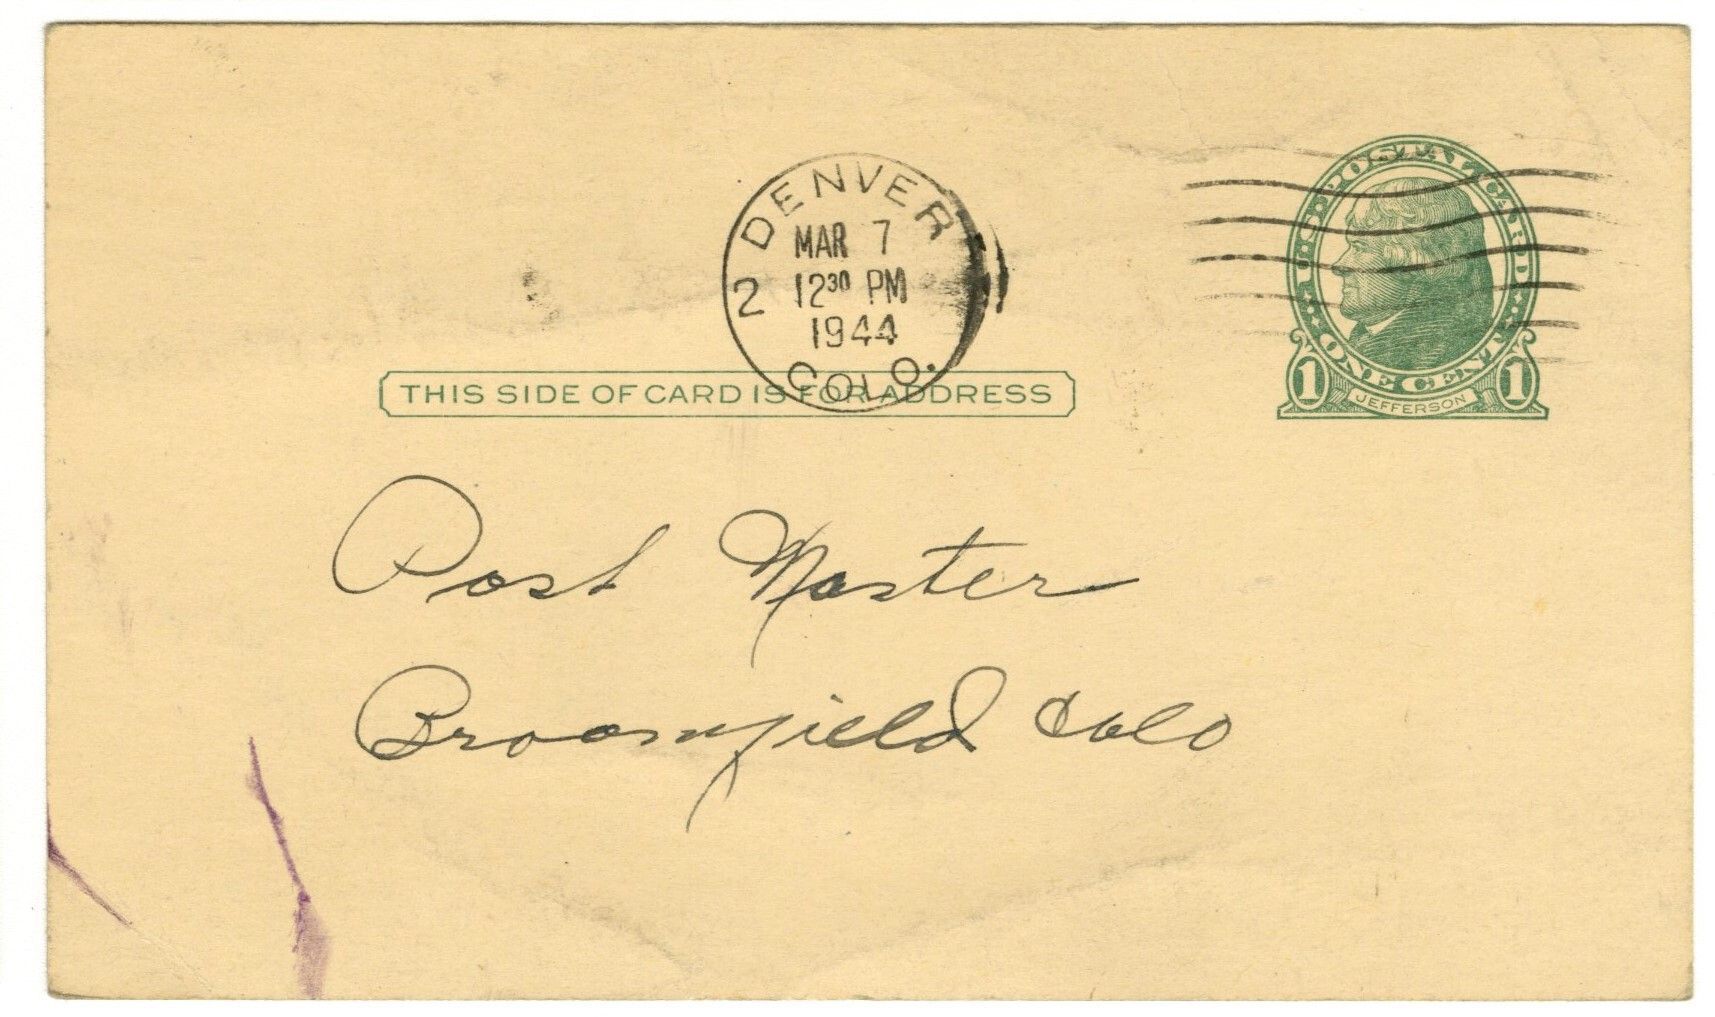 DENVER
2
MAR 7
12 30 PM
1944
COLO.
U.S. POSTAL CARD
ONE CENT
1 JEFFERSON 1
THIS SIDE OF CARD IS FOR ADDRESS
Post Master
Broomfield Colo